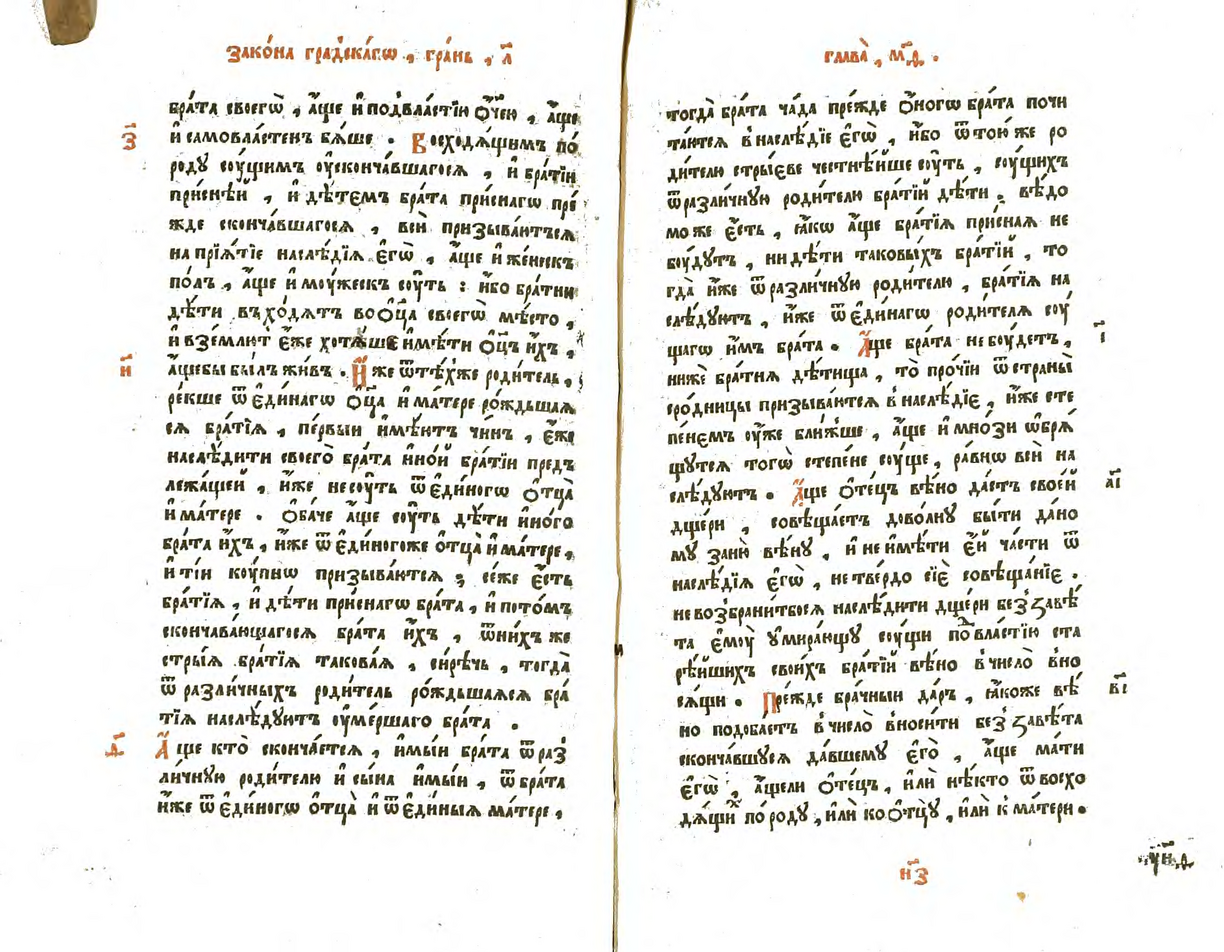 зако́на градска́гѡ , гра́нь , л҃
бра́та своегѡ̀ , а҆́ще и҆ подвла́стїю ѻ҆́ч҃ею , а҆́ще
з҃
и҆ самовла́стенъ бѧ́ше . Восходѧ́щимъ по́
роду сꙋ́щимъ ᲂу҆сконча́вшагосѧ , и҆ бра́тїи
при́снѣй , и҆ дѣ́темъ бра́та при́снагѡ пре́
жде сконча́вшагосѧ , всѝ призыва́ютьсѧ
на прїѧ́тїе наслѣ́дїѧ є҆гѡ̀ , а҆́ще и҆ же́нескъ
по́лъ , а҆́ще и҆ мꙋ́жескъ сꙋ́ть : и҆́бо бра́тни
дѣ́ти въхо́дѧтъ во ѻ҆ц҃а̀ своегѡ̀ мѣ́сто ,
и҆ взе́млют є҆́же хотѧ́ше и҆мѣ́ти ѻ҆ц҃ъ и҆́хъ ,
и҃
а҆́щебы бы́лъ жи́въ . И҆́же ѿ тѣ́хже роди́тель ,
ре́кше ѿ є҆ди́нагѡ ѻ҆ц҃а̀ и҆ ма́тере ро́ждьшаѧ
сѧ бра́тїѧ , пе́рвыи и҆мѣ́ютъ чи́нъ , є҆́же
наслѣ́дити своего̀ бра́та и҆но́й бра́тїи предъ
лежа́щей , и҆́же несꙋ́ть ѿ є҆ди́ногѡ ѻ҆тца̀
и҆ ма́тере . Ѻ҆ба́че а҆́ще сꙋ́ть дѣ́ти и҆но́го
бра́та и҆́хъ , и҆́же ѿ є҆ди́ногоже ѻ҆тца̀ и҆ ма́тере ,
и҆ ті́и кꙋ́пнѡ призыва́ютсѧ ; се́же є҆́сть
бра́тїѧ , и҆ дѣ́ти при́снагѡ бра́та , и҆ пото́мъ
сконча́вающагосѧ бра́та и҆́хъ , ѿ ни́хъ же
стры́ѧ бра́тїѧ такова́ѧ , си́рѣчь , тогда̀
ѿ разли́чныхъ роди́тель ро́ждьшаѧсѧ бра́
тїѧ наслѣ́дꙋютъ ᲂу҆ме́ршаго бра́та .
д҃
А҆́ще кто̀ сконча́етсѧ , и҆мы́и бра́та ѿ раз
ли́чную роди́телю и҆ сы́на и҆мы́и , ѿ бра́та
и҆́же ѿ є҆ди́ногѡ ѻ҆тца̀ и҆ ѿ є҆ди́ныѧ ма́тере ,
глава̀ , м҃д .
тогда̀ бра́та ча́да пре́жде ѻ҆́ногѡ бра́та почи
та́ютсѧ в наслѣ́дїе є҆гѡ̀ , и҆́бо ѿ тою́же ро
ди́телю стры́єве честнѣ́йше сꙋ́ть , сꙋ́щихъ
ѿ разли́чную роди́телю бра́тїй дѣ́ти . вѣ́до
мо же є҆́сть , ꙗ҆́кѡ а҆́ще бра́тїѧ при́снаѧ не
бꙋ́дутъ , ни дѣ́ти таковы́хъ бра́тїй , то
гда̀ и҆́же ѿ разли́чную роди́телю , бра́тїѧ на
слѣ́дуютъ , и҆́же ѿ є҆ди́нагѡ роди́телѧ сꙋ́
щагѡ и҆́мъ бра́та . А҆́ще бра́та не бꙋ́детъ ,
і҃
нижѐ бра́тнѧ дѣ́тища , то̀ про́чїи ѿ страны̀
сро́дницы призыва́ютсѧ в наслѣ́дїє , и҆́же сте
пе́немъ ᲂу҆́же бли́жше , а҆́ще и҆ мно́зи ѡ҆брѧ́
щутсѧ тогѡ̀ степе́не сꙋ́ще , ра́внѡ всѝ на
слѣ́дуютъ . А҆́ще ѻ҆те́цъ вѣ́но да́стъ свое́й
а҃і
дще́ри , совѣща́етъ дово́лну бы́ти да́но
му занѐ вѣ́ну , и҆ не и҆мѣ́ти є҆́й ча́сти ѿ
наслѣ́дїѧ є҆гѡ̀ , не тве́рдо сїѐ совѣща́нїє .
не возбрани́тбосѧ наслѣ́дити дще́ри без̾ завѣ́
та є҆мꙋ̀ ᲂу҆мира́ющу сꙋ́щи по вла́стїю ста
рѣ́йшихъ свои́хъ бра́тїй вѣ́но в число̀ вно
сѧ́щи . Пре́жде бра́чныи да́ръ , ꙗ҆́коже вѣ́
в҃і
но подоба́етъ в число̀ вноси́ти без̾ завѣ́та
сконча́вшусѧ да́вшему є҆го̀ , а҆́ще ма́ти
є҆гѡ̀ , а҆́щели ѻ҆те́цъ , и҆лѝ нѣ́кто ѿ восхо
дѧ́щих по́роду , и҆лѝ ко ѻ҆тцу̀ , и҆лѝ к ма́тери .
н҃з